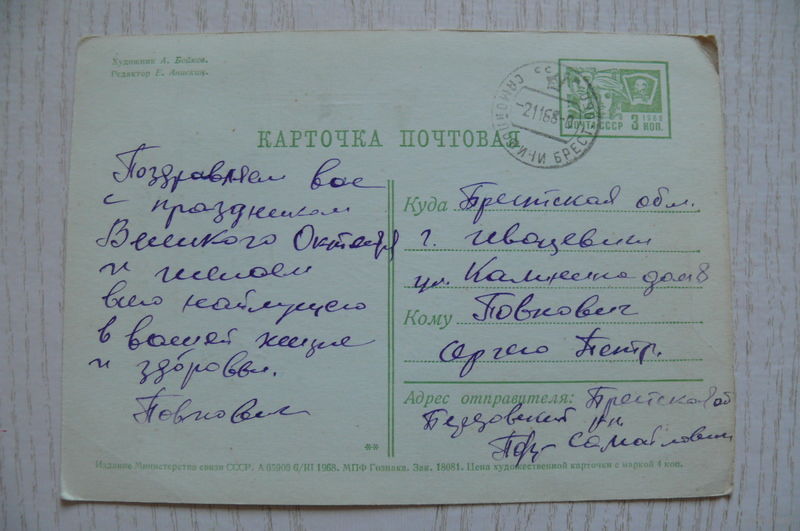 Художник А. Бойков.
Редактор Е. Анискин.
ПОЧТА СССР 1966 3 КОП.
-21168-
КАРТОЧКА ПОЧТОВАЯ
Поздравляем вас
с праздником
Великого Октября
и желаем
всего наилучшего
в вашей жизни
и здоровьи.
Повкович
Куда Брестская обл.
г. Ивацевичи
ул. Калинина дом 8
Кому Повкович
Сергею Петр.
Адрес отправителя: Брестская об
Березовский
Самойловичи
Издание Министерства связи СССР. А 05906 6/III 1968. МПФ Гознака. Зак. 18081. Цена художественной карточки с маркой 4 коп.